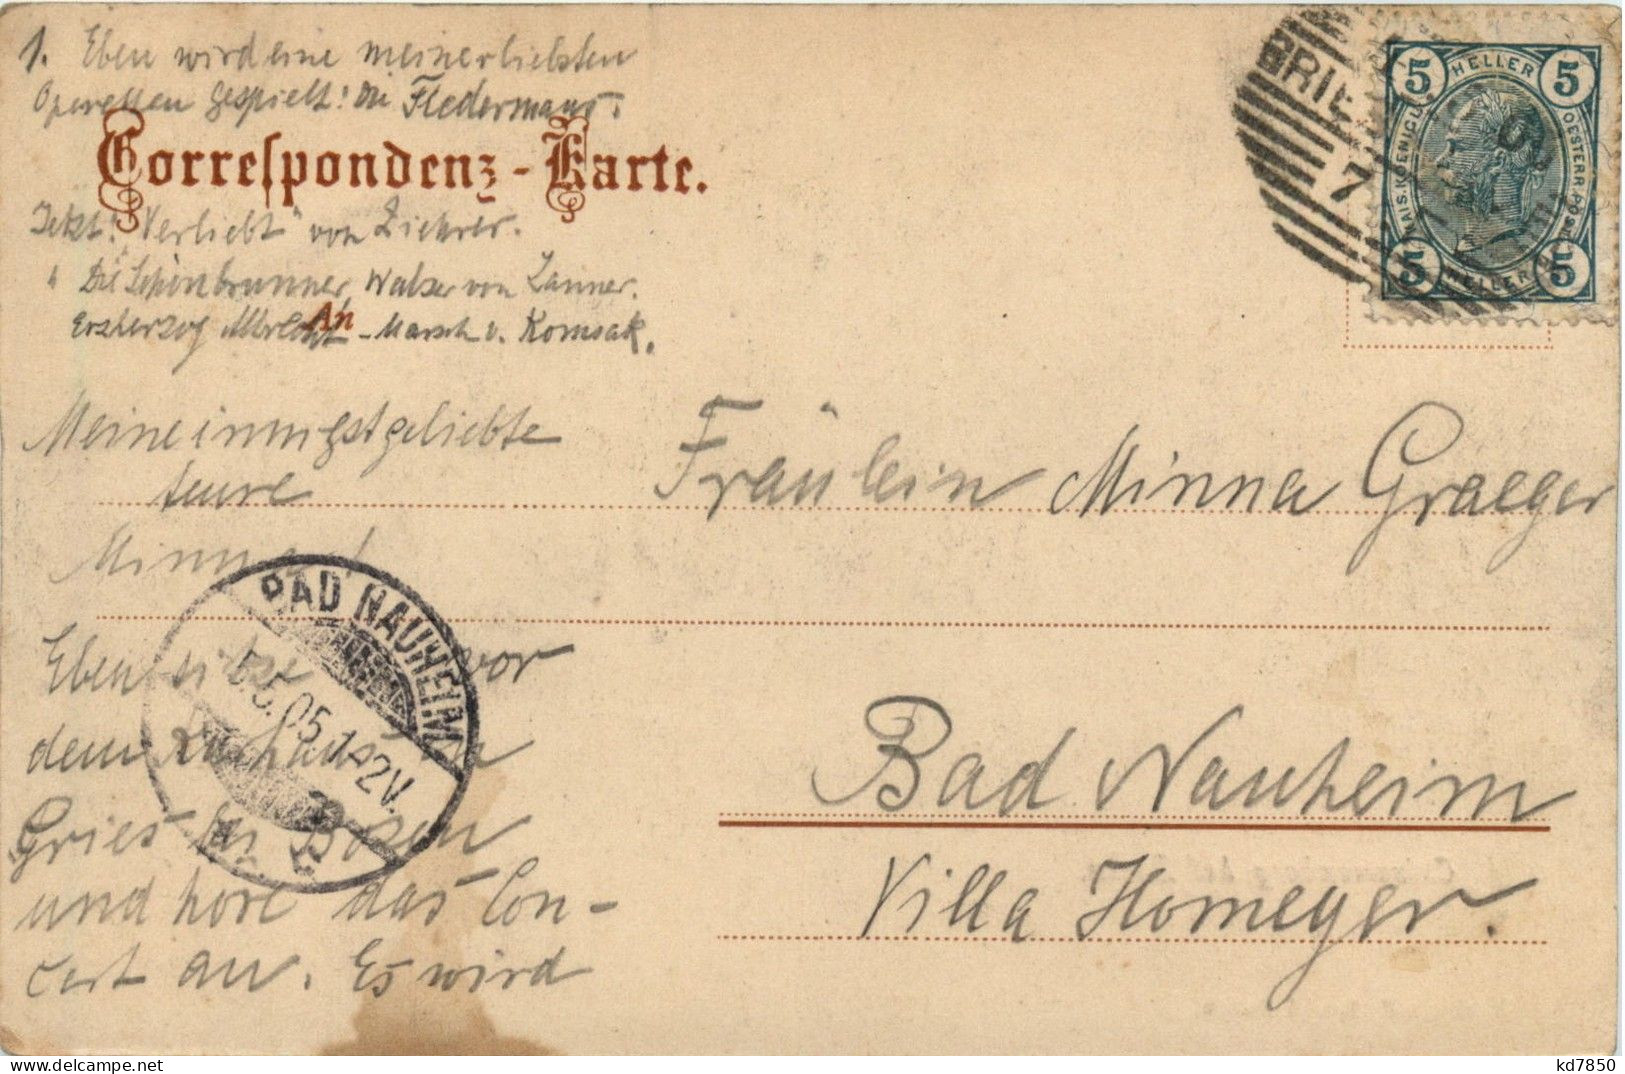 1. Eben wird eine meiner liebsten
Operetten gespielt: Die Fledermaus.
Correspondenz-Karte.
Jetzt: "Verliebt" von Ziehrer.
" Die Schönbrunner, Walzer von Lanner.
Erzherzog Albrecht - Marsch v. Komzak.
An
Meine innigstgeliebte
teure
Fräulein Minna Graeger
Eben sitze vor
dem Kurhaus in
Gries bei Bozen
und höre das Con-
cert an. Es wird
Bad Nauheim
Villa Homeyer.
BAD NAUHEIM
5.05.
BRIE
7
5 HELLER 5
KAIS. KOENIGL. OESTERR. POST
5 HELLER 5
kd7850